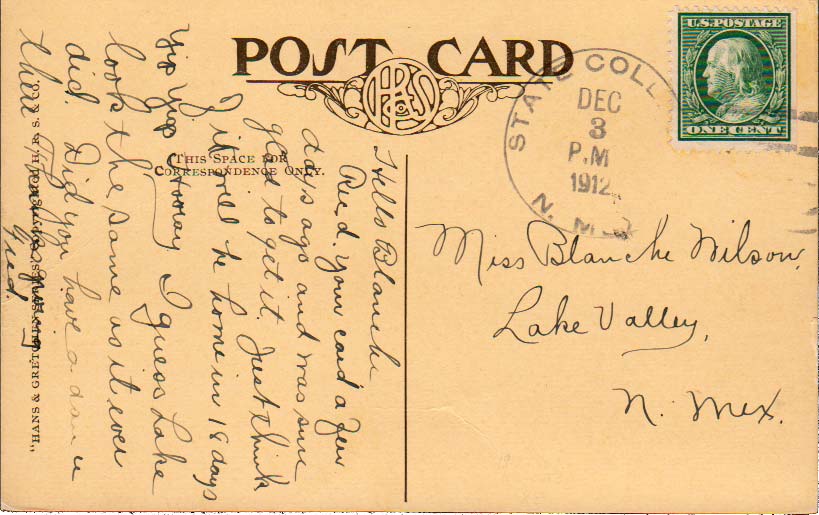 POST CARD
THIS SPACE FOR
CORRESPONDENCE ONLY.
U.S. POSTAGE
ONE CENT
STATE COLL
DEC
3
P.M
1912
N. MEX
Miss Blanche Wilson,
Lake Valley,
N. Mex.
Hello Blanche
Rec'd. your card a few
days ago and was sure
glad to get it. Just think
I will be home in 18 days
Yip Yip I guess Lake
look the same as it ever
did. Did you have a dance
there
Fred.
"HANS & GRETCHEN" H. R. S. & CO.